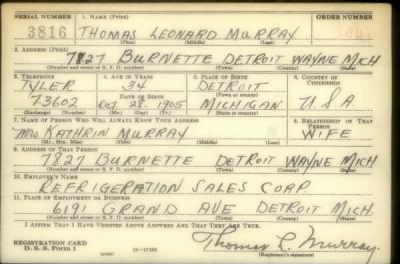 SERIAL NUMBER 1. NAME (Print) ORDER NUMBER
3816 THOMAS LEONARD MURRAY
(First) (Middle) (Last)
2. ADDRESS (Print)
7827 BURNETTE DETROIT WAYNE MICH
(Number and street or R. F. D. number) (Town) (County) (State)
3. TELEPHONE 4. AGE IN YEARS 5. PLACE OF BIRTH 6. COUNTRY OF CITIZENSHIP
TYLER 34 DETROIT
DATE OF BIRTH
73602 Oct 28 1905 MICHIGAN U.S.A
(Exchange) (Number) (Mo.) (Day) (Yr.) (State or country)
7. NAME OF PERSON WHO WILL ALWAYS KNOW YOUR ADDRESS 8. RELATIONSHIP OF THAT PERSON
Mrs KATHRIN MURRAY WIFE
(Mr., Mrs., Miss) (First) (Middle) (Last)
9. ADDRESS OF THAT PERSON
7827 BURNETTE DETROIT WAYNE MICH
(Number and street or R. F. D. number) (Town) (County) (State)
10. EMPLOYER'S NAME
REFRIGERATION SALES CORP.
11. PLACE OF EMPLOYMENT OR BUSINESS
6191 GRAND AVE DETROIT MICH.
(Number and street or R. F. D. number) (Town) (County) (State)
I AFFIRM THAT I HAVE VERIFIED ABOVE ANSWERS AND THAT THEY ARE TRUE.
REGISTRATION CARD
D. S. S. Form 1 Thomas L. Murray
(Registrant's signature)